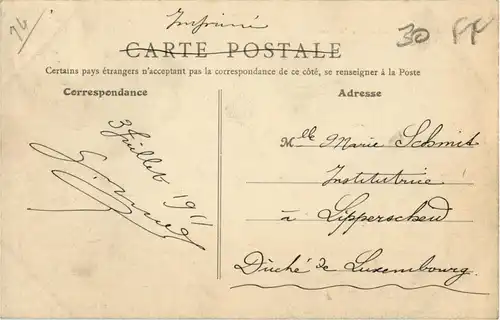 76
Imprimé
30 FF
CARTE POSTALE
Certains pays étrangers n'acceptant pas la correspondance de ce côté, se renseigner à la Poste
Correspondance
3 Juillet 1911
Adresse
Mlle Marie Schmit
Institutrice
à Lipperscheid
Duché de Luxembourg.